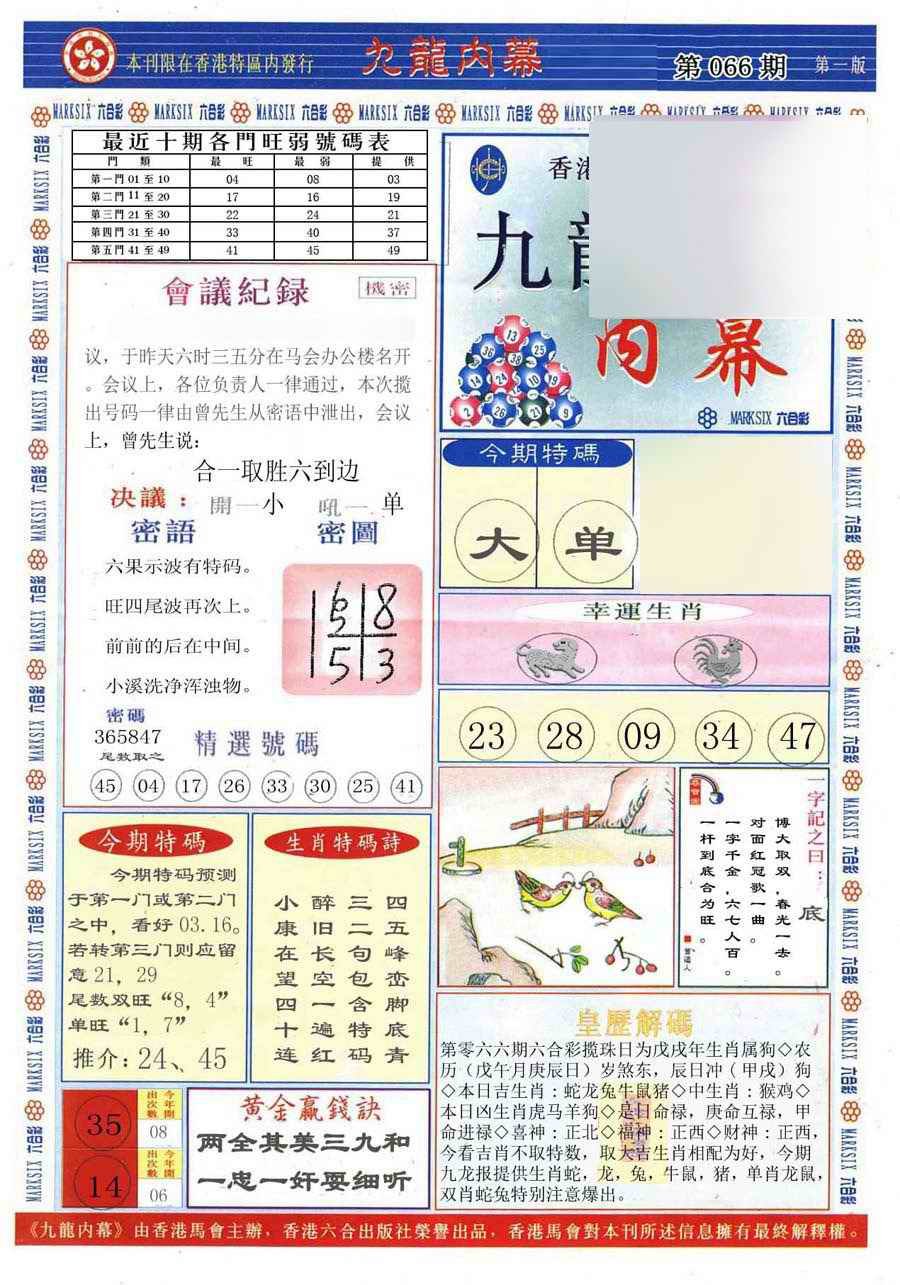 本刊限在香港特區内發行
九龍内幕
第 066 期
第一版
MARKSIX 六合彩
最近十期各門旺弱號碼表
門 類 最 旺 最 弱 提 供
第一門 01 至 10 04 08 03
第二門 11 至 20 17 16 19
第三門 21 至 30 22 24 21
第四門 31 至 40 33 40 37
第五門 41 至 49 41 45 49
香港
九龍
内幕
13
36 38 25
24 10 19
2 26 27 9
MARKSIX 六合彩
會議紀録
機密
议，于昨天六时三五分在马会办公楼名开
。会议上，各位负责人一律通过，本次搅
出号码一律由曾先生从密语中泄出，会议
上，曾先生说：
合一取胜六到边
决議： 開一小 吼一 单
密語 密圖
六果示波有特码。
旺四尾波再次上。
前前的后在中间。
小溪洗净浑浊物。
6 8
5 3
密碼
365847
尾数取之
精選號碼
45 04 17 26 33 30 25 41
今期特碼
大 单
幸運生肖
23 28 09 34 47
一字記之曰：底
博大取双，春光一去。
对面红冠歌一曲。
一字千金，六七人百。
一杆到底合为旺。
曾道人
今期特碼
今期特码预测
于第一门或第二门
之中，看好 03.16。
若转第三门则应留
意 21，29
尾数双旺“8，4”
单旺“1，7”
推介：24、45
生肖特碼詩
四五峰峦脚底青
三二句包含特码
醉旧长空一遍红
小康在望四十连
皇歷解碼
第零六六期六合彩搅珠日为戊戌年生肖属狗◇农
历（戊午月庚辰日）岁煞东，辰日冲（甲戌）狗
◇本日吉生肖：蛇龙兔牛鼠猪◇中生肖：猴鸡◇
本日凶生肖虎马羊狗◇是日命禄，庚命互禄，甲
命进禄◇喜神：正北◇福神：正西◇财神：正西，
今看吉肖不取特数，取大吉生肖相配为好，今期
九龙报提供生肖蛇，龙，兔，牛鼠，猪，单肖龙鼠，
双肖蛇兔特别注意爆出。
35
今年開出次數
08
14
今年開出次數
06
黄金贏錢訣
两全其美三九和
一忠一奸耍细听
《九龍内幕》由香港馬會主辦，香港六合出版社榮譽出品，香港馬會對本刊所述信息擁有最終解釋權。